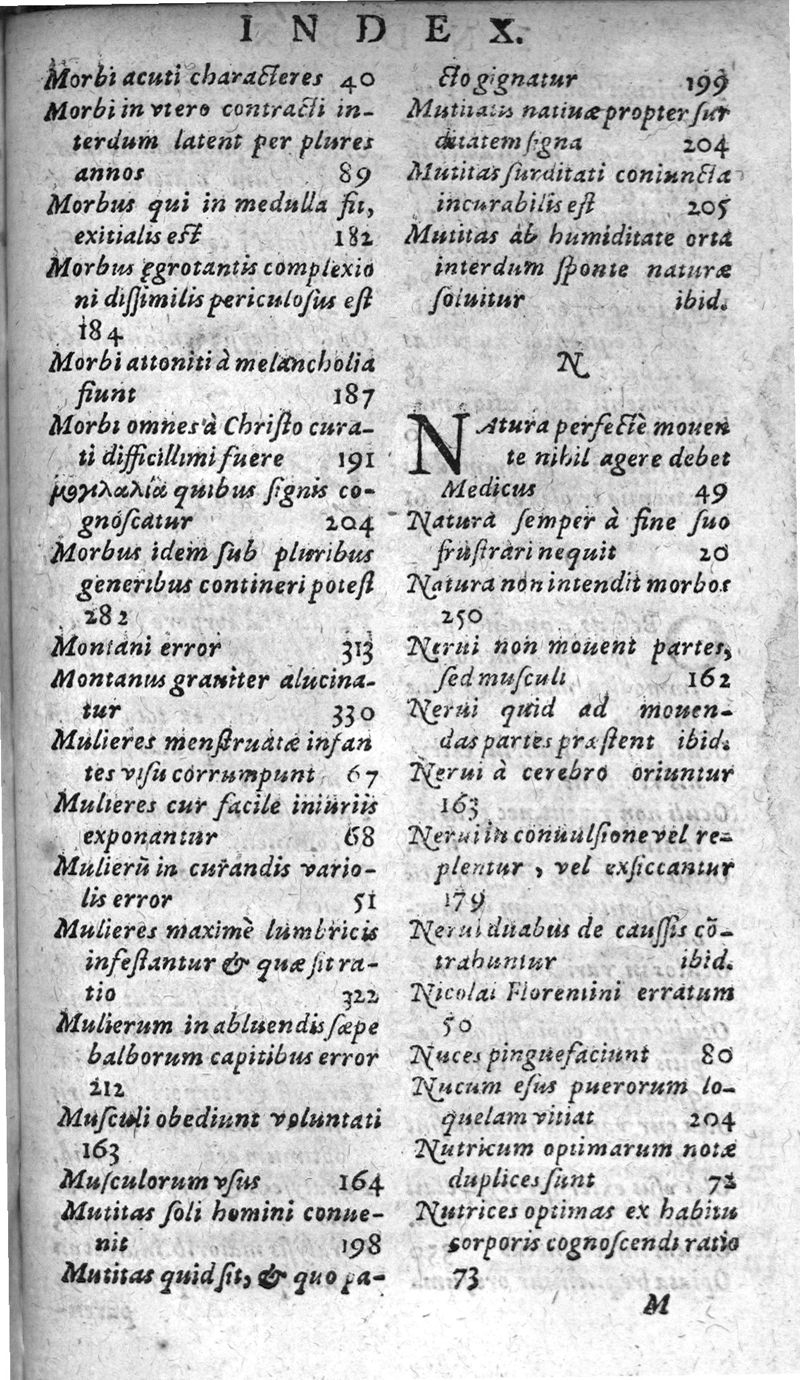 INDEX.
Morbi acuti characteres 40
Morbi in vtero contracti in-
terdum latent per plures
annos 89
Morbus qui in medulla fit,
exitialis est 182
Morbus ęgrotantis complexio
ni dissimilis periculosus est
184
Morbi attoniti à melancholia
fiunt 187
Morbi omnes à Christo cura-
ti difficillimi fuere 191
μογιλαλία quibus signis co-
gnoscatur 204
Morbus idem sub pluribus
generibus contineri potest
282
Montani error 313
Montanus grauiter alucina-
tur 330
Mulieres menstruatæ infan
tes visu corrumpunt 67
Mulieres cur facile iniuriis
exponantur 68
Mulierū in curandis vario-
lis error 51
Mulieres maximè lumbricis
infestantur & quæ sit ra-
tio 322
Mulierum in abluendis sæpe
balborum capitibus error
212
Musculi obediunt voluntati
163
Musculorum vsus 164
Mutitas soli homini conue-
nit 198
Mutitas quid sit, & quo pa-
cto gignatur 199
Mutitatis natiuæ propter sur
ditatem signa 204
Mutitas surditati coniuncta
incurabilis est 205
Mutitas ab humiditate orta
interdum sponte naturæ
soluitur ibid.
N
NAtura perfectè mouen
te nihil agere debet
Medicus 49
Natura semper à fine suo
frustrari nequit 20
Natura non intendit morbos
250
Nerui non mouent partes,
sed musculi 162
Nerui quid ad mouen-
das partes præstent ibid.
Nerui à cerebro oriuntur
163
Nerui in conuulsione vel re-
plentur, vel exsiccantur
179
Nerui duabus de caussis cō-
trahuntur ibid.
Nicolai Florentini erratum
50
Nuces pinguefaciunt 80
Nucum esus puerorum lo-
quelam vitiat 204
Nutricum optimarum notæ
duplices sunt 72
Nutrices optimas ex habitu
corporis cognoscendi ratio
73
M